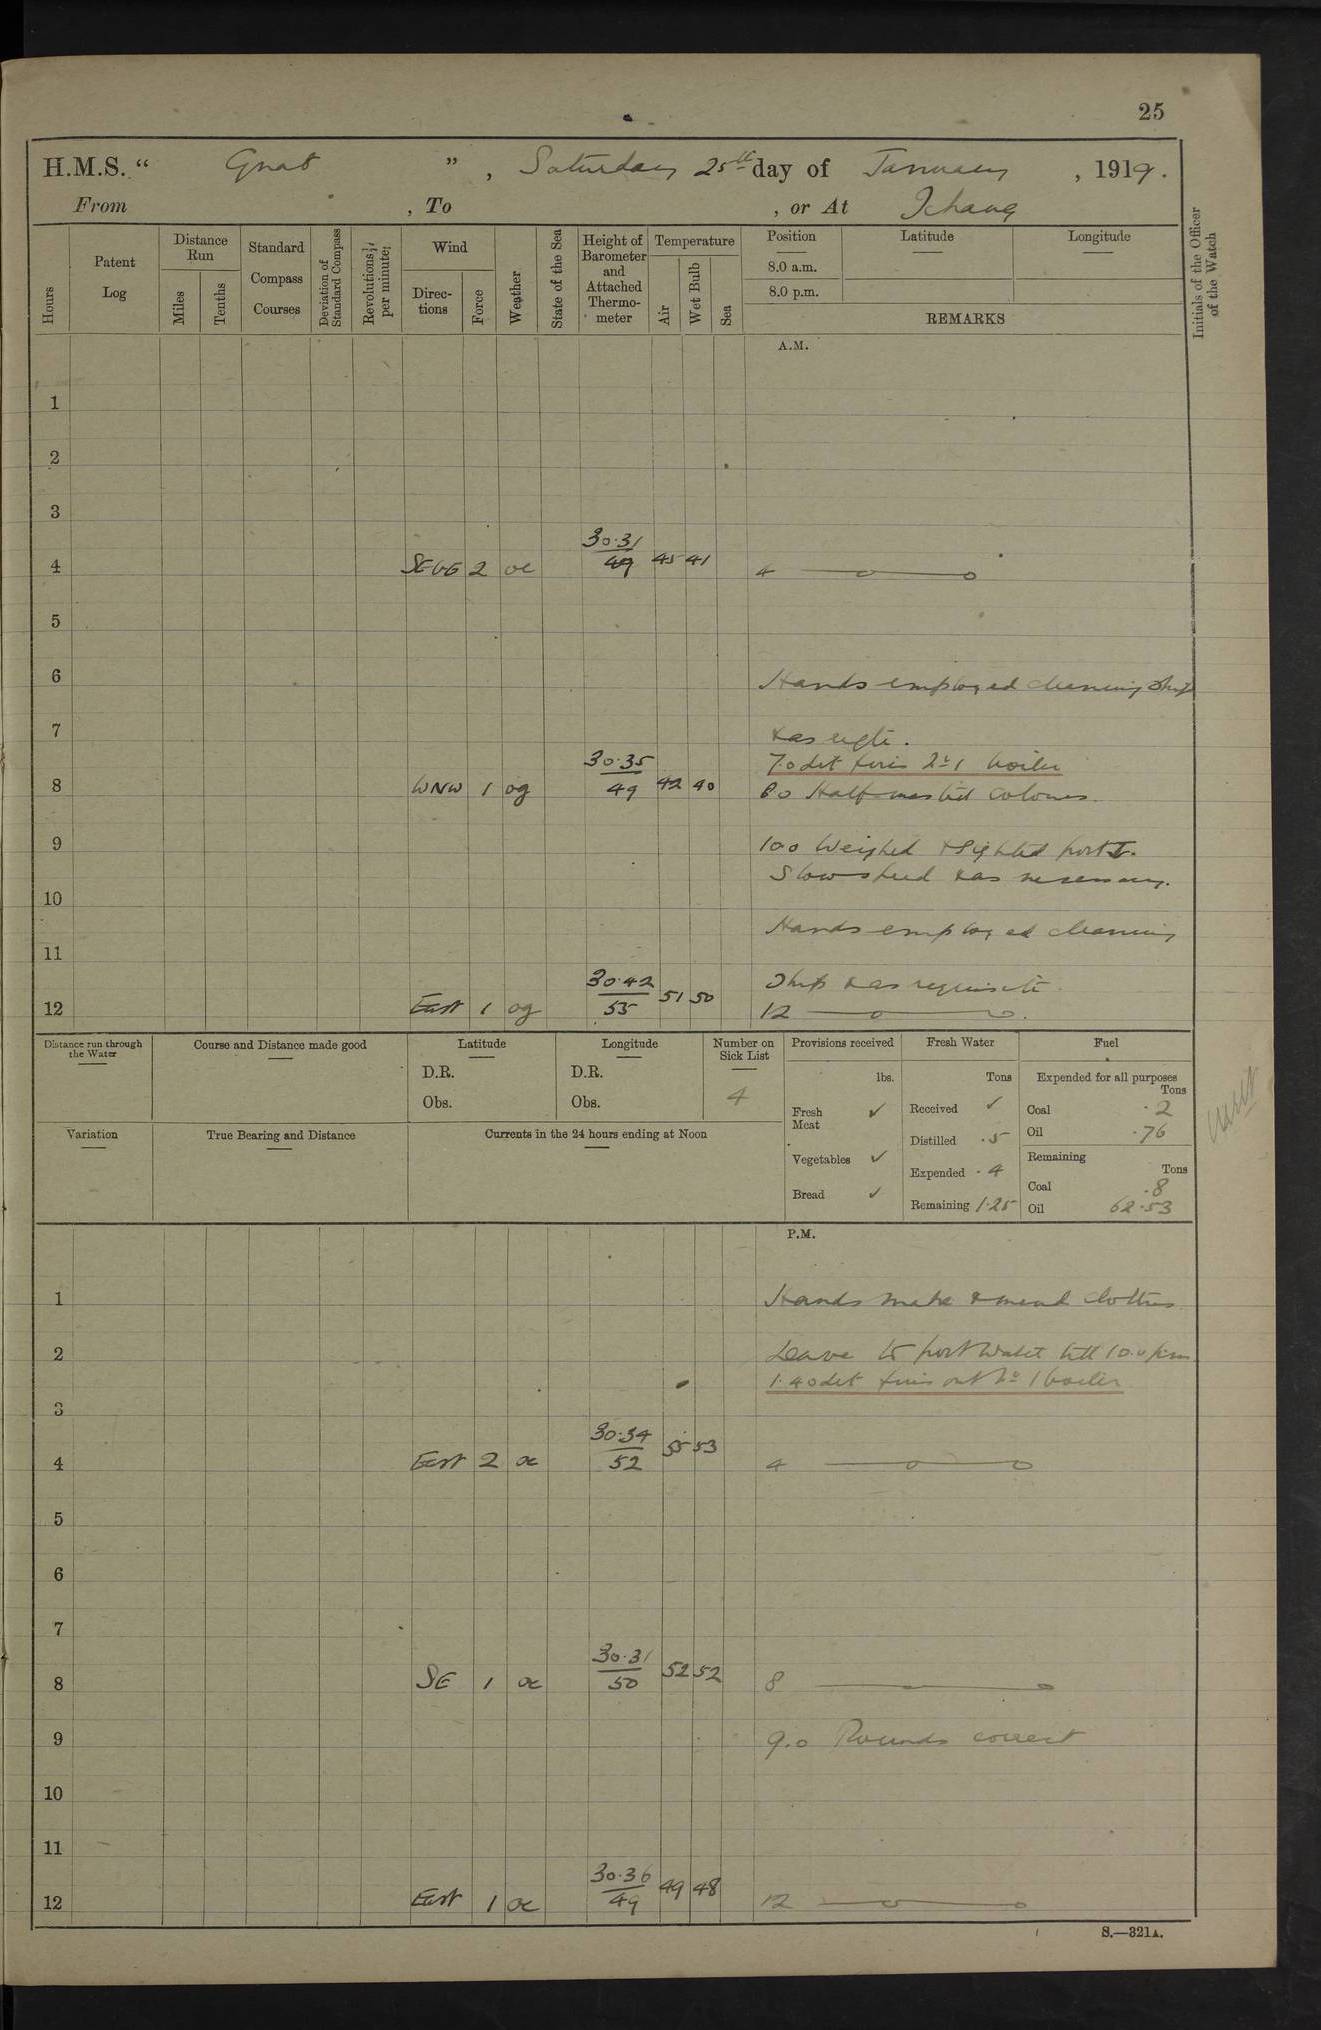 25
H.M.S. “ Gnat ” , Saturday 25th day of January , 1919.
From , To , or At Ichang
Hours
Patent Log
Distance Run
Miles
Tenths
Standard Compass Courses
Deviation of Standard Compass
Revolutions per minute
Wind
Directions
Force
Weather
State of the Sea
Height of Barometer and Attached Thermometer
Temperature
Air
Wet Bulb
Sea
Position
8.0 a.m.
8.0 p.m.
Latitude
Longitude
REMARKS
Initials of the Officer of the Watch
A.M.
1
2
3
30.31
4 SEbE 2 oc 49 45 41 4
5
6 Hands employed cleaning Ship
7 & as reqte.
30.35 7.0 Let fires No 1 boiler
8 WNW 1 og 49 42 40 8.0 Half masted Colours
9 10.0 Weighed & Sighted port
Slow speed & as necessary.
10
Hands employed cleaning
11
30.42 Ship & as requisite
12 East 1 og 55 51 50 12
Distance run through the Water
Course and Distance made good
Latitude
D.R.
Obs.
Longitude
D.R.
Obs.
Number on Sick List
4
Variation
True Bearing and Distance
Currents in the 24 hours ending at Noon
Provisions received
lbs.
Fresh Meat ✓
Vegetables ✓
Bread ✓
Fresh Water
Tons
Received ✓
Distilled .5
Expended .4
Remaining 1.25
Fuel
Expended for all purposes
Tons
Coal .2
Oil .76
Remaining
Tons
Coal .8
Oil 62.53
P.M.
1 Hands make & mend Clothes
2 Leave to port Watch till 10.0 p.m.
1.40 Let fires out No 1 boiler
3
30.34
4 East 2 oc 52 55 53 4
5
6
7
30.31
8 SE 1 oc 50 52 52 8
9 9.0 Rounds correct
10
11
30.36
12 East 1 oc 49 49 48 12
S.—321A.